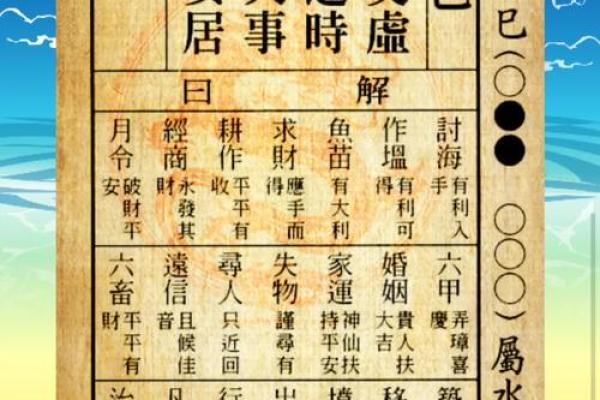 巳(○●● ○○○)屬水
虛
時
事
居
解曰
討海 有利入手
作塭 有利可得
魚苗 有大利
求財 應手而得
耕作 平平有收
經商 永發其財
月令 破財平安
六甲 弄璋喜慶
婚姻 貴人扶大吉
家運 神仙扶持平安
失物 謹尋有
尋人 只近回
遠信 且候佳音
六畜 平平有財